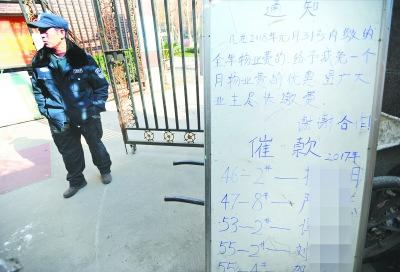 通知
凡在2018年元月31号内缴纳
全年物业费的,给予减免一个
月物业费的优惠,望广大
业主尽快缴费。
谢谢合作
催款 2017年
46—2#—
47—8#—
53—2#—
55—2#—刘
55—4#—贺